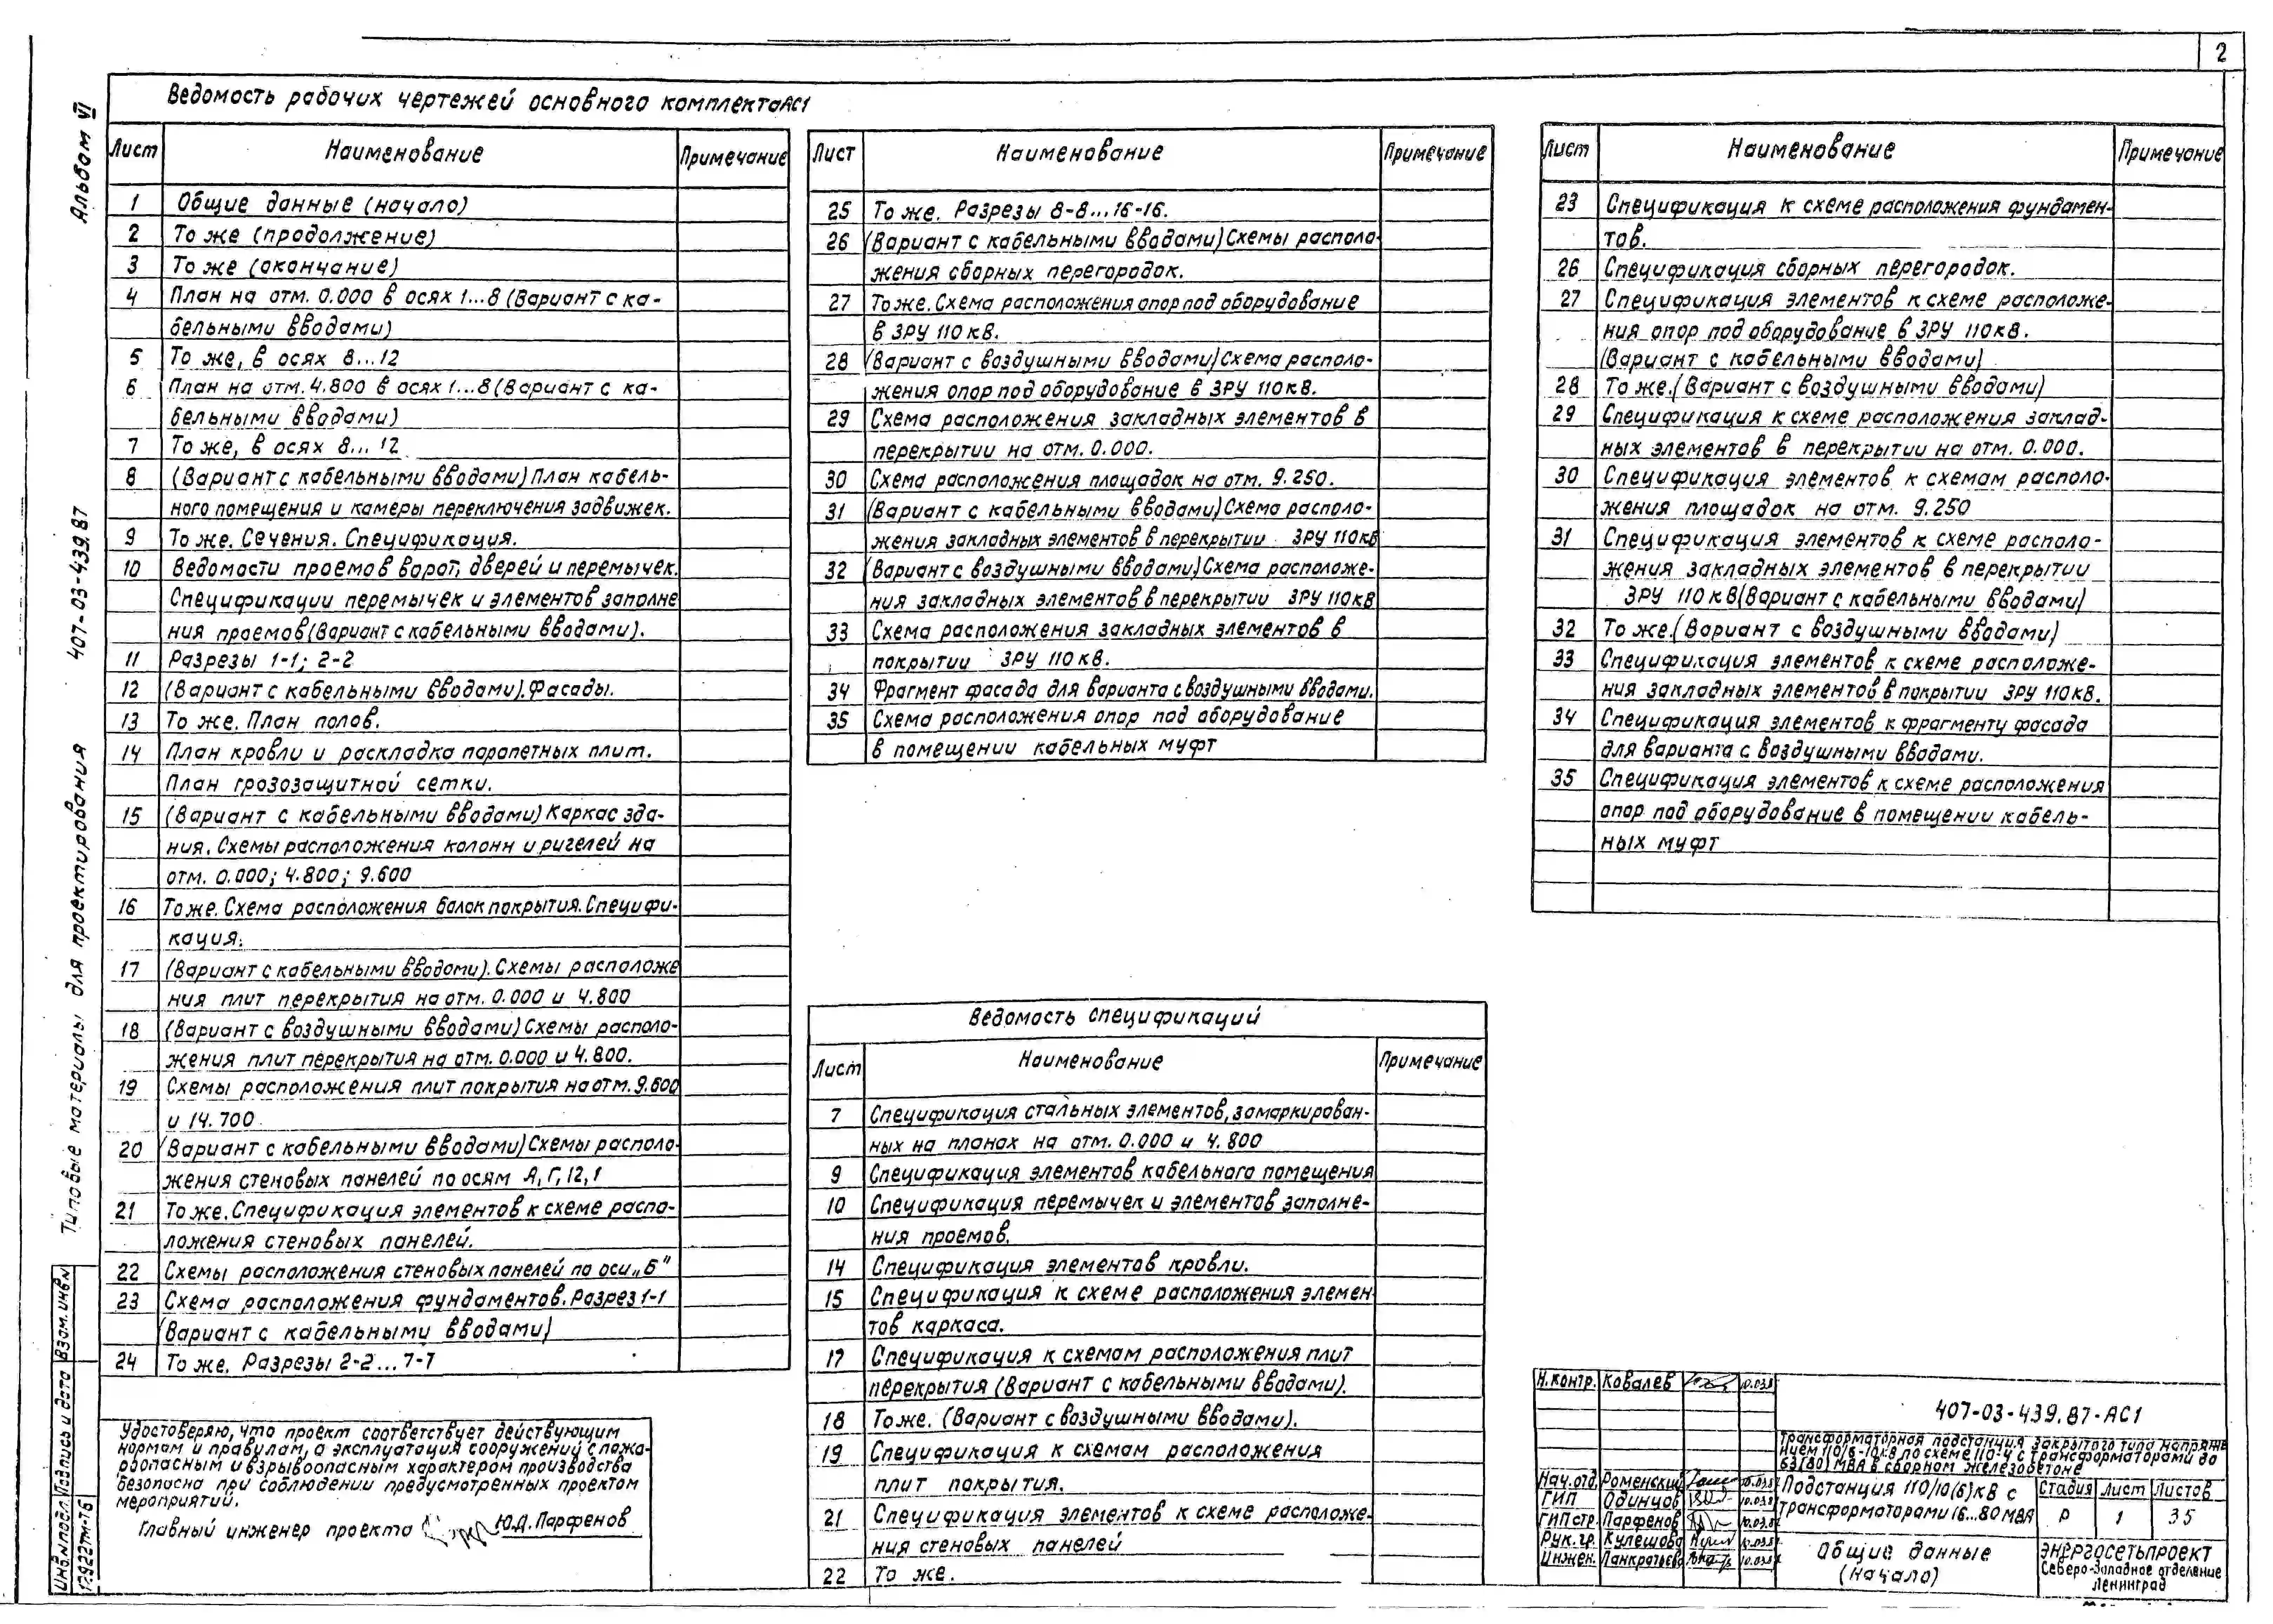 2
Альбом VI
407-03-439.87
Типовые материалы для проектирования
Взам. инв. №
Подпись и дата
Инв. № подл.
17922тм-т6
Ведомость рабочих чертежей основного комплекта АС1
Лист Наименование Примечание
1 Общие данные (начало)
2 То же (продолжение)
3 То же (окончание)
4 План на отм. 0.000 в осях 1...8 (Вариант с ка-
бельными вводами)
5 То же, в осях 8...12
6 План на отм. 4.800 в осях 1...8 (Вариант с ка-
бельными вводами)
7 То же, в осях 8...12
8 (Вариант с кабельными вводами) План кабель-
ного помещения и камеры переключения задвижек.
9 То же. Сечения. Спецификация.
10 Ведомости проемов ворот, дверей и перемычек.
Спецификации перемычек и элементов заполне
ния проемов (Вариант с кабельными вводами).
11 Разрезы 1-1; 2-2
12 (Вариант с кабельными вводами). Фасады.
13 То же. План полов.
14 План кровли и раскладка парапетных плит.
План грозозащитной сетки.
15 (Вариант с кабельными вводами) Каркас зда-
ния. Схемы расположения колонн и ригелей на
отм. 0.000; 4.800; 9.600
16 То же. Схема расположения балок покрытия. Специфи-
кация.
17 (Вариант с кабельными вводами). Схемы расположе
ния плит перекрытия на отм. 0.000 и 4.800
18 (Вариант с воздушными вводами) Схемы располо-
жения плит перекрытия на отм. 0.000 и 4.800.
19 Схемы расположения плит покрытия на отм. 9.600
и 14.700
20 (Вариант с кабельными вводами) Схемы располо-
жения стеновых панелей по осям А, Г, 12, 1
21 То же. Спецификация элементов к схеме распо-
ложения стеновых панелей.
22 Схемы расположения стеновых панелей по оси „Б"
23 Схема расположения фундаментов. Разрез 1-1
(Вариант с кабельными вводами)
24 То же. Разрезы 2-2...7-7
Лист Наименование Примечание
25 То же. Разрезы 8-8...16-16.
26 (Вариант с кабельными вводами) Схемы располо-
жения сборных перегородок.
27 То же. Схема расположения опор под оборудование
в ЗРУ 110 кв.
28 (Вариант с воздушными вводами) Схема располо-
жения опор под оборудование в ЗРУ 110 кв.
29 Схема расположения закладных элементов в
перекрытии на отм. 0.000.
30 Схема расположения площадок на отм. 9.250.
31 (Вариант с кабельными вводами) Схема располо-
жения закладных элементов в перекрытии ЗРУ 110 кв
32 (Вариант с воздушными вводами) Схема расположе-
ния закладных элементов в перекрытии ЗРУ 110 кв
33 Схема расположения закладных элементов в
покрытии ЗРУ 110 кв.
34 Фрагмент фасада для варианта с воздушными вводами.
35 Схема расположения опор под оборудование
в помещении кабельных муфт
Ведомость спецификаций
Лист Наименование Примечание
7 Спецификация стальных элементов, замаркирован-
ных на планах на отм. 0.000 и 4.800
9 Спецификация элементов кабельного помещения
10 Спецификация перемычек и элементов заполне-
ния проемов.
14 Спецификация элементов кровли.
15 Спецификация к схеме расположения элемен
тов каркаса.
17 Спецификация к схемам расположения плит
перекрытия (Вариант с кабельными вводами).
18 То же. (Вариант с воздушными вводами).
19 Спецификация к схемам расположения
плит покрытия.
21 Спецификация элементов к схеме расположе-
ния стеновых панелей
22 То же.
Лист Наименование Примечание
23 Спецификация к схеме расположения фундамен-
тов.
26 Спецификация сборных перегородок.
27 Спецификация элементов к схеме расположе-
ния опор под оборудование в ЗРУ 110 кв.
(Вариант с кабельными вводами)
28 То же. (Вариант с воздушными вводами)
29 Спецификация к схеме расположения заклад-
ных элементов в перекрытии на отм. 0.000.
30 Спецификация элементов к схемам располо-
жения площадок на отм. 9.250
31 Спецификация элементов к схеме располо-
жения закладных элементов в перекрытии
ЗРУ 110 кв (Вариант с кабельными вводами)
32 То же. (Вариант с воздушными вводами)
33 Спецификация элементов к схеме расположе-
ния закладных элементов в покрытии ЗРУ 110 кв.
34 Спецификация элементов к фрагменту фасада
для варианта с воздушными вводами.
35 Спецификация элементов к схеме расположения
опор под оборудование в помещении кабель-
ных муфт
Удостоверяю, что проект соответствует действующим
нормам и правилам, а эксплуатация сооружений с пожа-
роопасным и взрывоопасным характером производства
безопасна при соблюдении предусмотренных проектом
мероприятий.
Главный инженер проекта Ю.Д. Парфенов
Н. контр. Ковалев
407-03-439.87-АС1
Трансформаторная подстанция закрытого типа напряже
нием 110/6-10 кв по схеме 110-4 с трансформаторами до
63(80) МВА в сборном железобетоне
Нач. отд. Роменский
ГИП Одинцов
ГИП стр. Парфенов
Рук. гр. Кулешова
Инжен. Панкратьева
Подстанция 110/10(6) кв с
трансформаторами 16...80 МВА
Стадия Лист Листов
Р 1 35
Общие данные
(начало)
ЭНЕРГОСЕТЬПРОЕКТ
Северо-Западное отделение
Ленинград